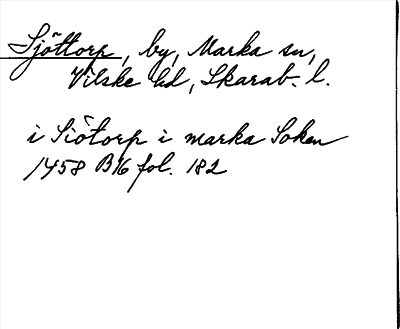 Sjöttorp, by, Marka sn,
Vilske hd, Skarab. l.
i Siötorp i marka Soken
1458 B16 fol. 182